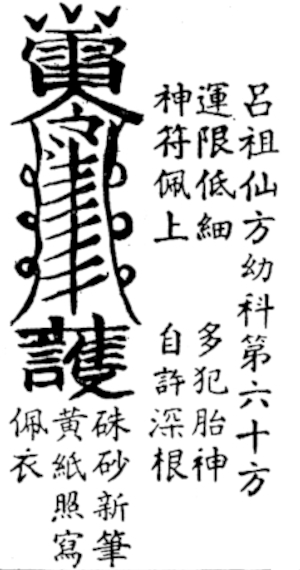 呂祖仙方幼科第六十方
運限低細 多犯胎神
神符佩上 自許深根
護
硃砂新筆
黃紙照寫
佩衣